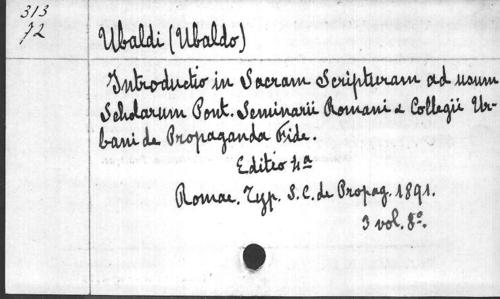 313
72
Ubaldi (Ubaldo)
Introductio in Sacram Scripturam ad usum
Scholarum Pont. Seminarii Romani & Collegii Ur-
bani de Propaganda Fide.
Editio 4a
Romae. Typ. S. C. de Propag. 1891.
3 vol. 8º.